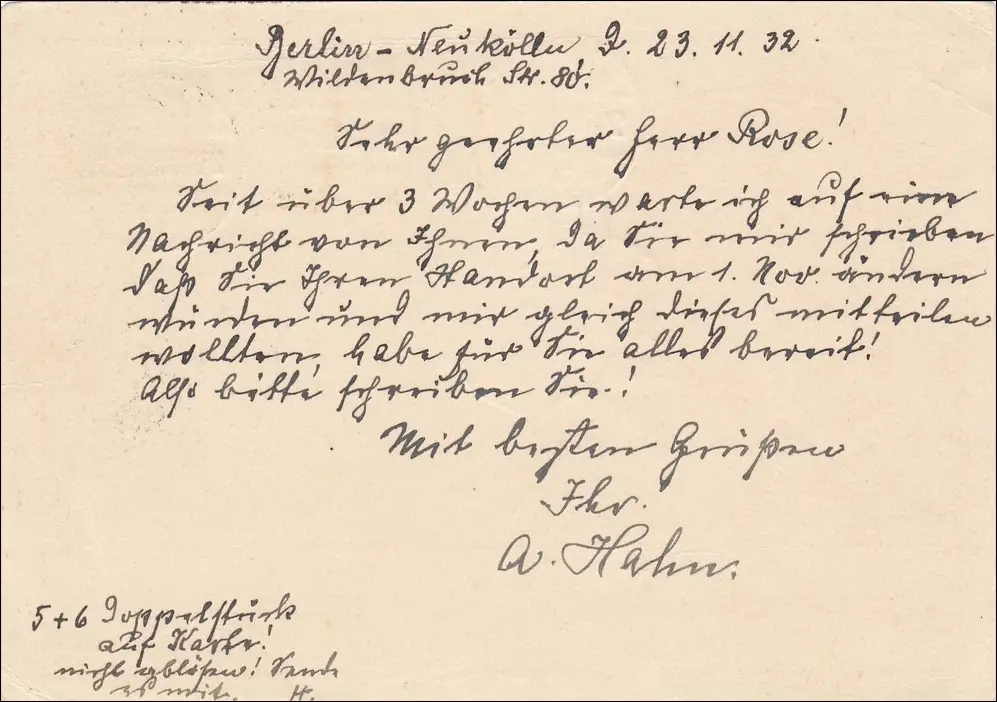 Berlin-Neukölln D. 23. 11. 32.
Wildenbruch Str. 80.
Sehr geehrter Herr Rose!
Seit über 3 Wochen warte ich auf eine
Nachricht von Ihnen, da Sie mir schrieben
daß Sie Ihren Standort am 1. Nov. ändern
würden und mir gleich dieses mitteilen
wollten, habe für Sie alles bereit!
Also bitte schreiben Sie!
Mit besten Grüßen
Ihr.
A. Hahn.
5+6 Doppelstück
auf Karte!
nicht ablösen! Sende
es mit. H.